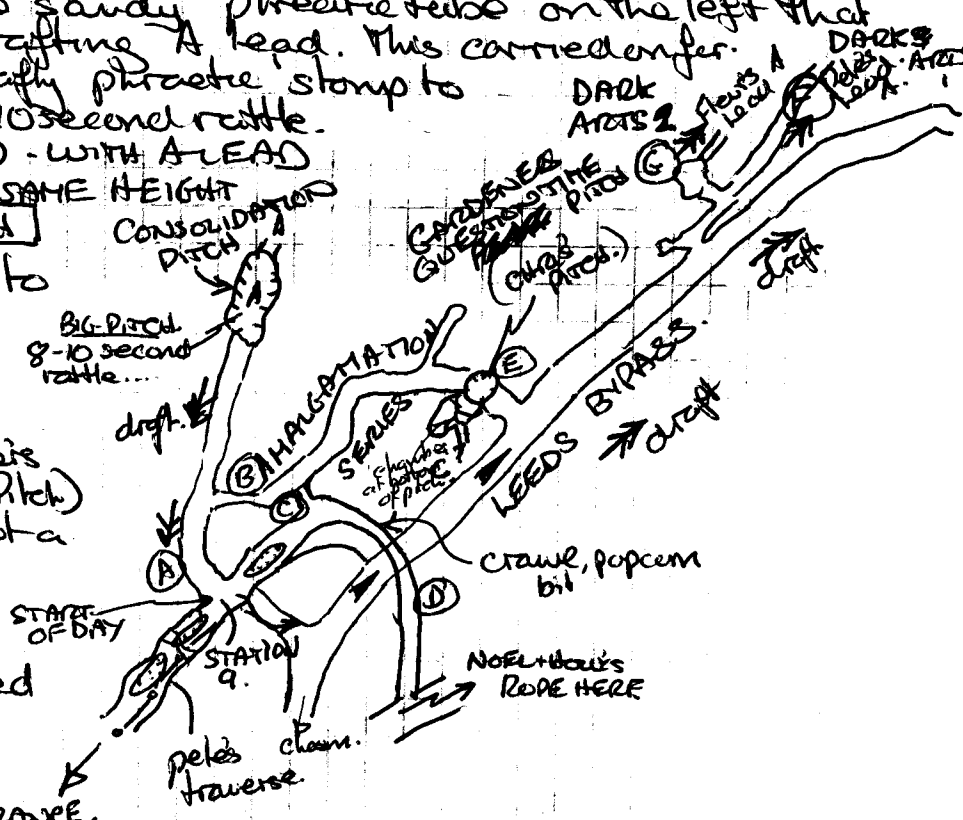 sandy phreatic tube on the left that
A lead. This carried on for
phreatic stomp to
10 second rattle.
- WITH A LEAD
SAME HEIGHT
to
CONSOLIDATION
PITCH
A
BIG PITCH
8-10 second
rattle....
draft.
DARK
ARTS 2
Fleur's
lead A
DARK
ARTS
1
Pete's
lead A.
F
G
GARDENER
QUESTION TIME
PITCH
(CHRIS'S
PITCH.)
draft
AMALGAMATION
SERIES
E
B
C
chamber
at bottom
of pitch.
LEEDS BYPASS.
draft
Pitch)
A
crawl, popcorn
bit
D
START
OF DAY
STATION
9.
NOEL + HOLLY'S
ROPE HERE
pete's
traverse.
chasm.